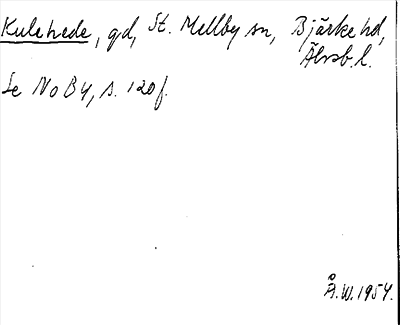 Kulehede, gd, St. Mellby sn, Bjärke hd,
Älvsb. l.
Se NoB 4, s. 120 f.
Å.W. 1954.